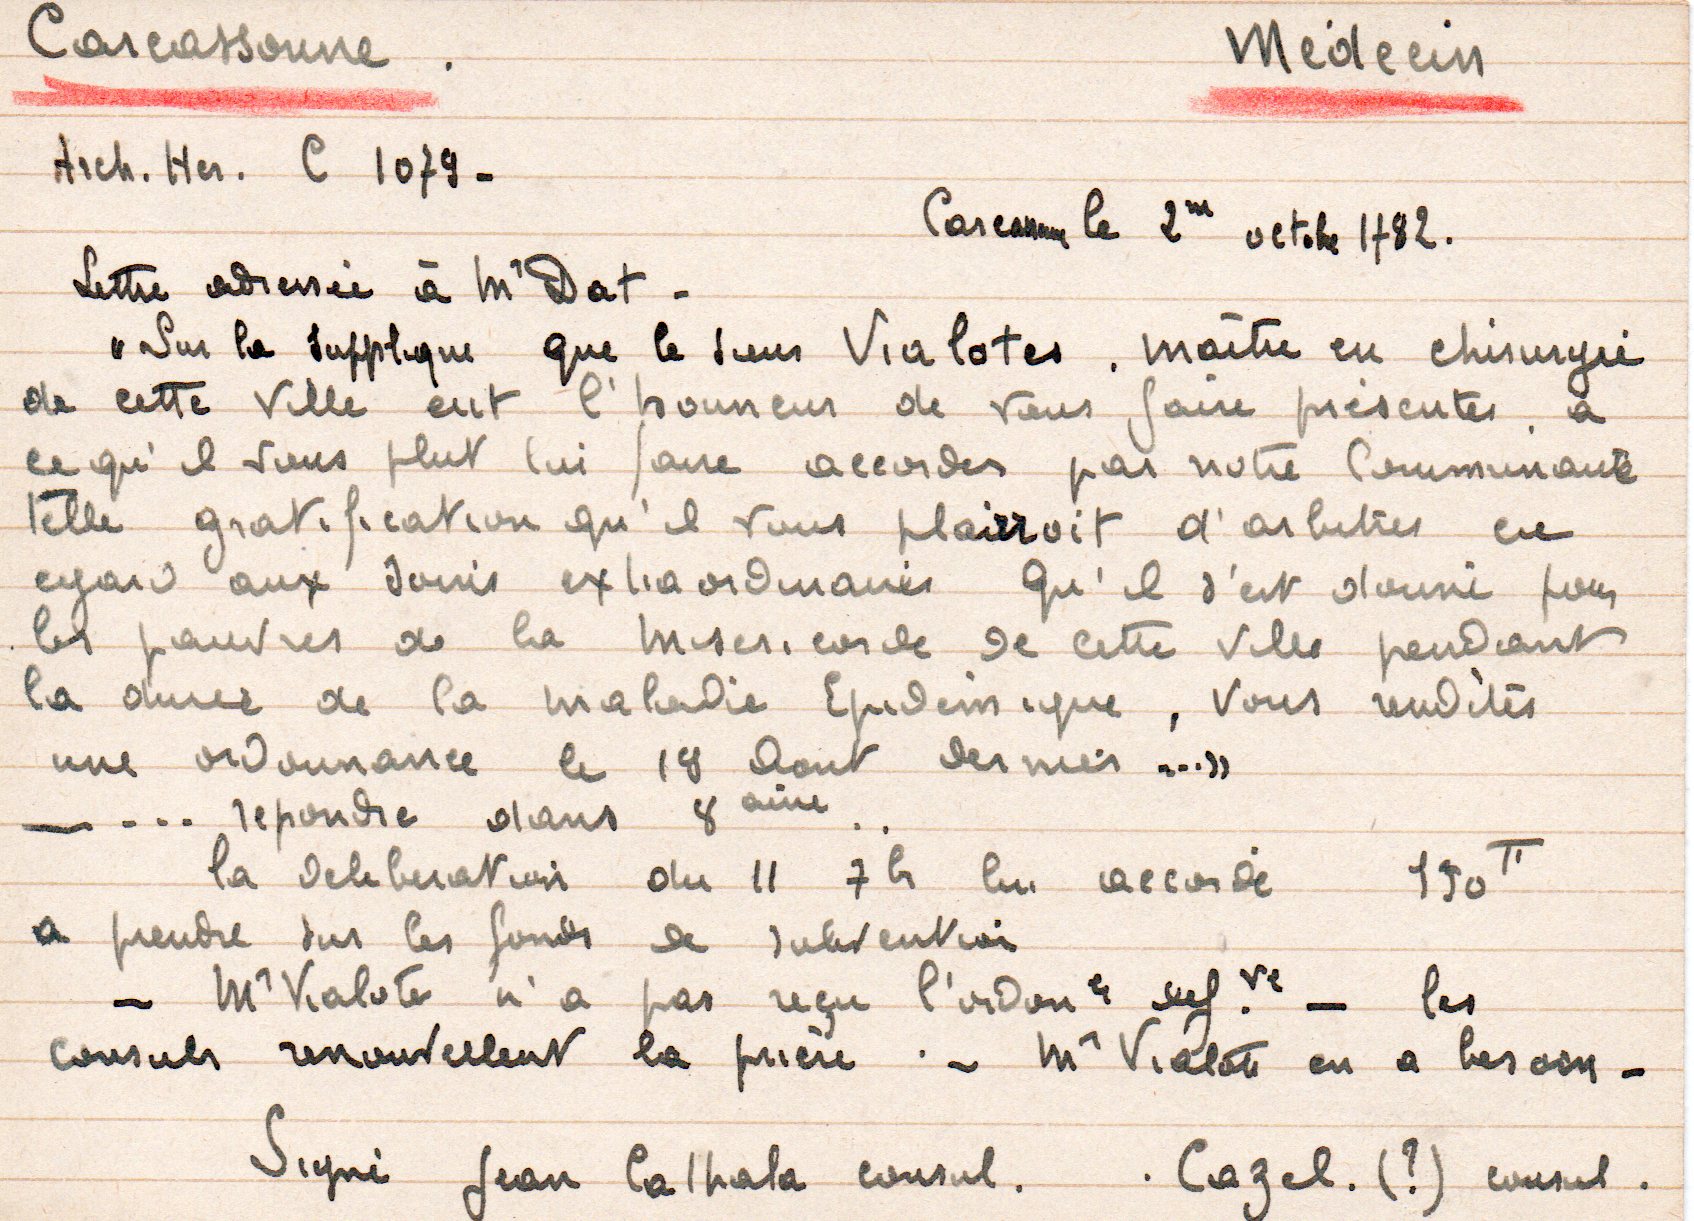 Carcassonne.
Médecin
Arch. Her. C 1079 -
Carcassonne le 2me octobre 1782.
Lettre adressée à Mr Dat -
"Sur la supplique que le sieur Vialates, maître en chirurgie
de cette ville eut l'honneur de vous faire présenter, a
ce qu'il vous plut lui faire accorder par notre Communauté
telle gratification qu'il vous plairroit d'arbitrer eu
egard aux soins extraordinaires qu'il s'est donné pour
les pauvres de la Misericorde de cette ville pendant
la durée de la maladie Epidémique, vous rendités
une ordonnance le 18 Aout dernier ...."
- --- repondre dans 8aine ..
la deliberation du 11 7b lui accordé 150 tt
a prendre sur les fonds de subvention
- Mr Vialate n'a pas reçu l'ordonce def.ve - les
consuls renouvellent la prière. - Mr Vialate en a besoin -
Signé Jean Cathala consul. . Cazel. (?) consul.